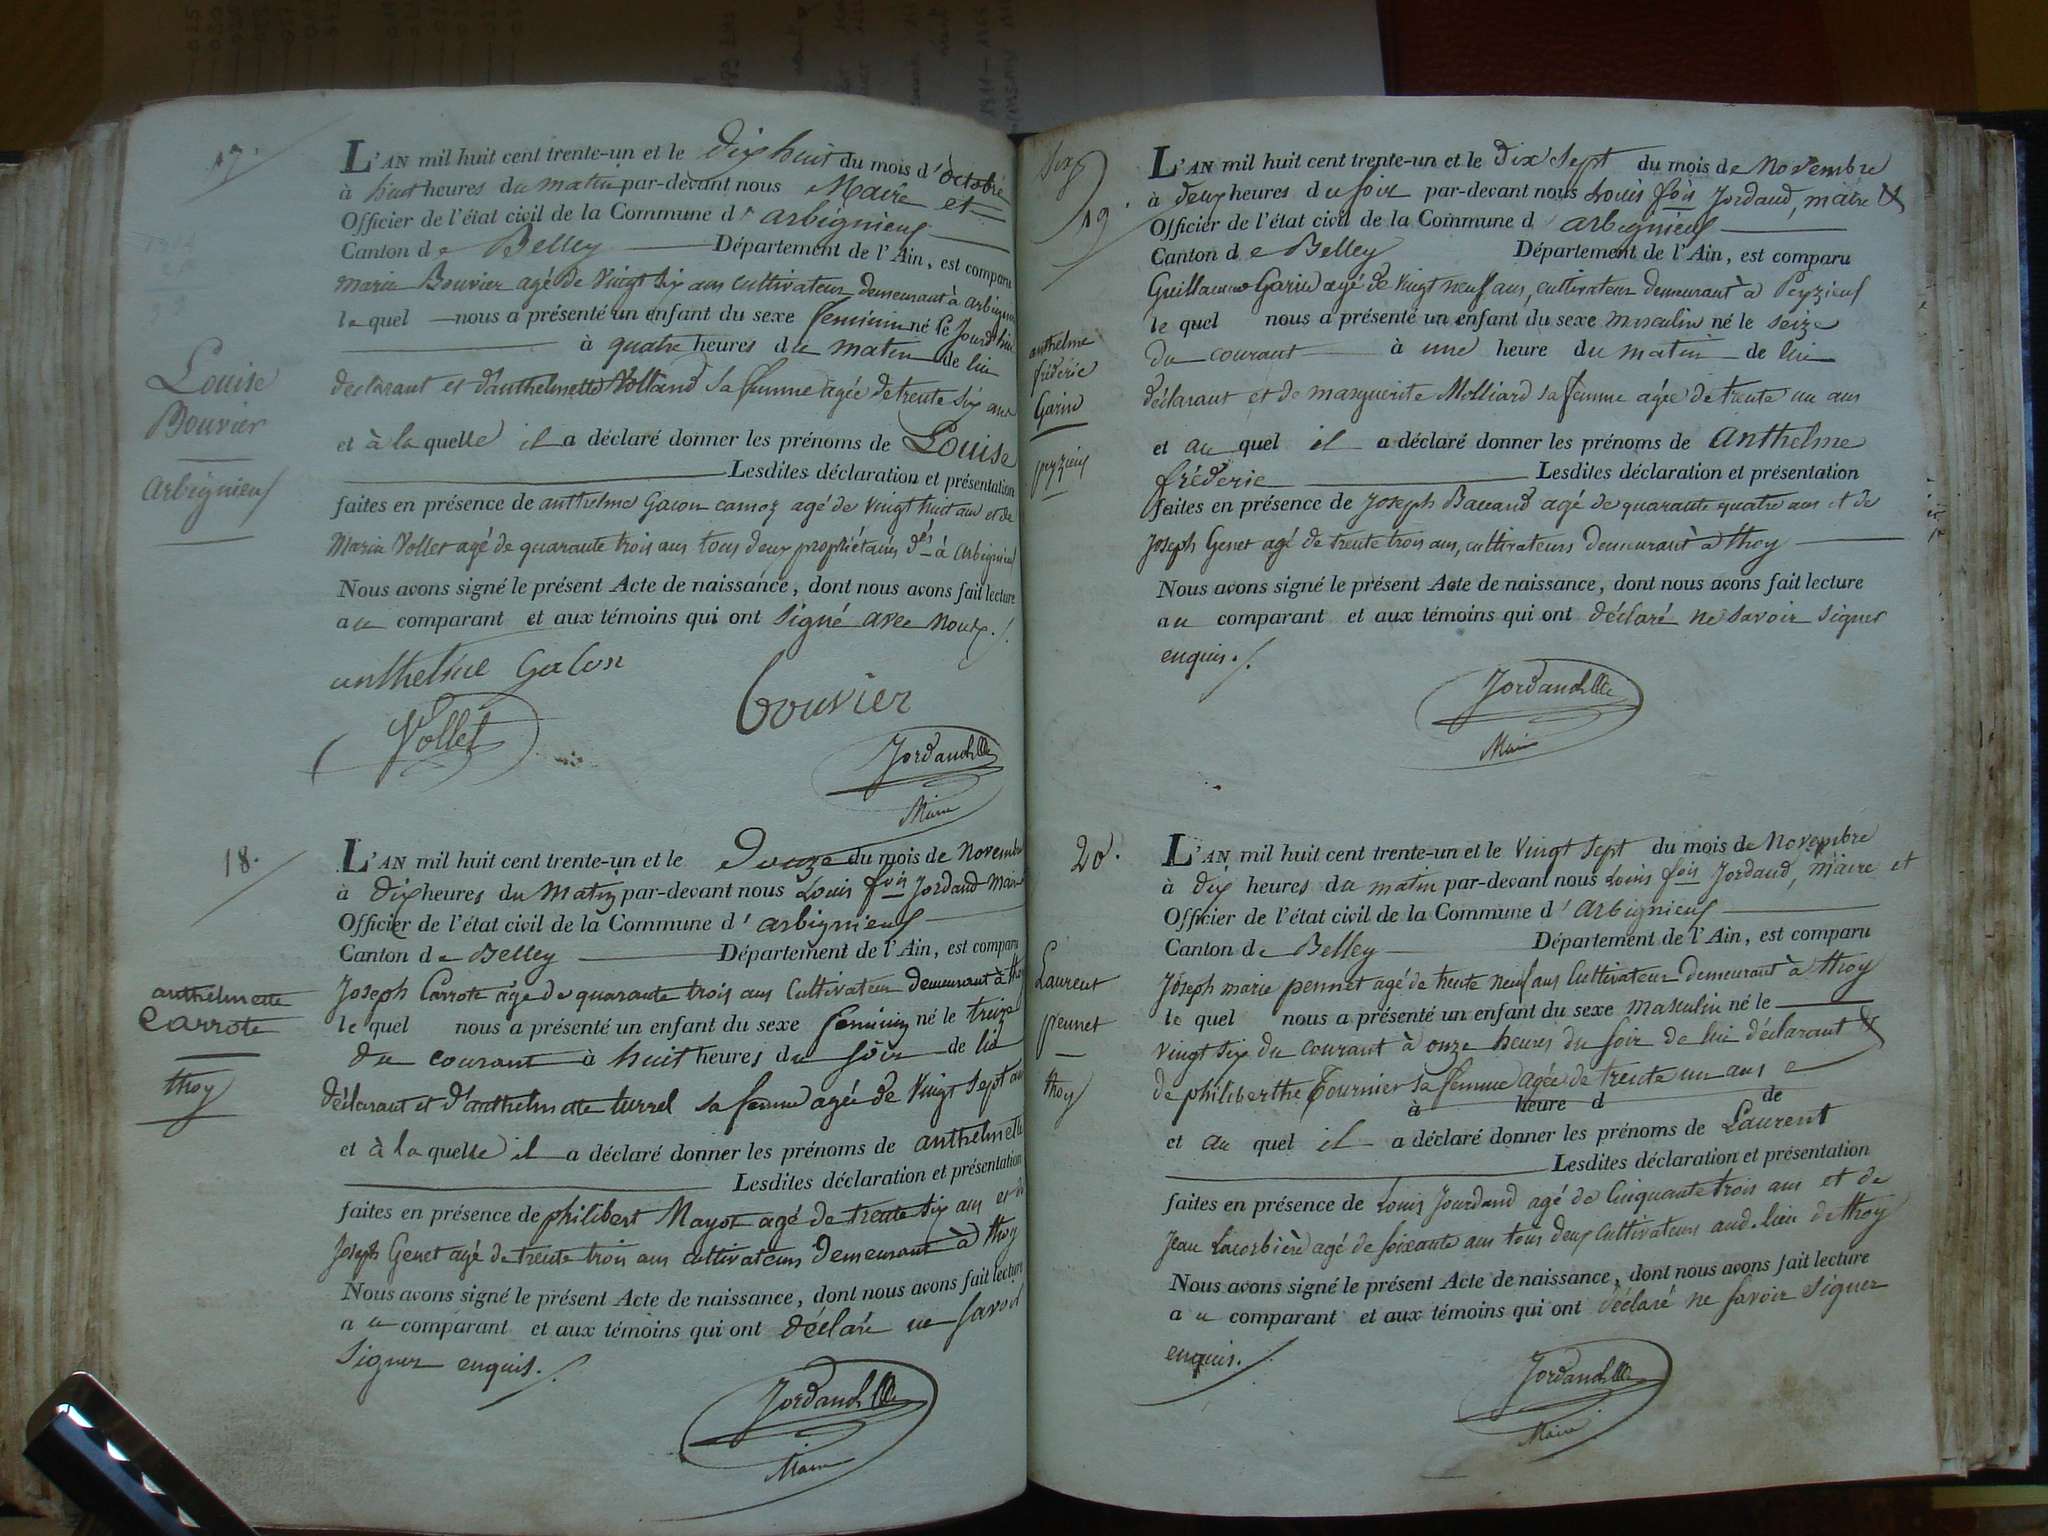 17.
Louise
Bouvier
Arbignieu
L'AN mil huit cent trente-un et le Dix huit du mois d'octobre
à huit heures du matin par-devant nous Maire et
Officier de l'état civil de la Commune d' arbignieu
Canton de Belley Département de l'Ain, est comparu
marin Bouvier agé de vingt six ans cultivateur demeurant à arbignieu
le quel nous a présenté un enfant du sexe feminin né le Jourd'hui
à quatre heures du matin de lui
déclarant et d'anthelmette Volland sa femme agée de trente six ans
et à la quelle il a déclaré donner les prénoms de Louise
Lesdites déclaration et présentation
faites en présence de anthelme Gacon camoz agé de vingt huit ans et de
Marin Vollet agé de quarante trois ans tous deux propriétaires dts à Arbignieu
Nous avons signé le présent Acte de naissance, dont nous avons fait lecture
au comparant et aux témoins qui ont signé avec nous ./.
anthelme Gacon
bouvier
Vollet
Jordand
Maire
18.
anthelmette
Carrote
thoy
L'AN mil huit cent trente-un et le Douze du mois de Novembre
à Dix heures du Matin par-devant nous Louis fois Jordand Maire
Officier de l'état civil de la Commune d' arbignieu
Canton de Belley Département de l'Ain, est comparu
Joseph Carrote age de quarante trois ans Cultivateur demeurant à thoy
le quel nous a présenté un enfant du sexe feminin né le treize
du courant à huit heures du soir de lui
déclarant et d'anthelmette turrel sa femme agée de Vingt sept ans
et à la quelle il a déclaré donner les prénoms de anthelmette
Lesdites déclaration et présentation
faites en présence de philibert Mayot agé de trente six ans et de
Joseph Genet agé de trente trois ans cultivateurs demeurant à thoy
Nous avons signé le présent Acte de naissance, dont nous avons fait lecture
au comparant et aux témoins qui ont déclaré ne savoir
signer enquis ./.
Jordand
Maire
19.
anthelme
fréderic
Garin
peyzieu
L'AN mil huit cent trente-un et le dix sept du mois de Novembre
à deux heures du soir par-devant nous Louis fois Jordand, maire &
Officier de l'état civil de la Commune d' arbignieu
Canton de Belley Département de l'Ain, est comparu
Guillaume Garin agé de vingt neuf ans, cultivateur demeurant à Peyzieu
le quel nous a présenté un enfant du sexe masculin né le seize
du courant à une heure du matin de lui
déclarant et de marguerite Molliard sa femme agée de trente un ans
et au quel il a déclaré donner les prénoms de anthelme
fréderic Lesdites déclaration et présentation
faites en présence de Joseph Baccard agé de quarante quatre ans et de
Joseph Genet agé de trente trois ans, cultivateurs demeurant à thoy
Nous avons signé le présent Acte de naissance, dont nous avons fait lecture
au comparant et aux témoins qui ont déclaré ne savoir signer
enquis ./.
Jordand
Maire
20.
Laurent
pennet
thoy
L'AN mil huit cent trente-un et le vingt sept du mois de Novembre
à dix heures du matin par-devant nous Louis fois Jordand, maire et
Officier de l'état civil de la Commune d' Arbignieu
Canton de Belley Département de l'Ain, est comparu
Joseph marie pennet agé de trente neuf ans Cultivateur demeurant à thoy
le quel nous a présenté un enfant du sexe masculin né le
vingt six du courant à onze heures du soir de lui déclarant &
de philiberthe Tournier sa femme agée de trente un ans
à heure d de
et au quel il a déclaré donner les prénoms de Laurent
Lesdites déclaration et présentation
faites en présence de Louis Jourdand agé de Cinquante trois ans et de
Jean Lacorbière agé de soixante ans tous deux cultivateurs aud. lieu de thoy
Nous avons signé le présent Acte de naissance, dont nous avons fait lecture
au comparant et aux témoins qui ont déclaré ne savoir signer
enquis ./.
Jordand
Maire